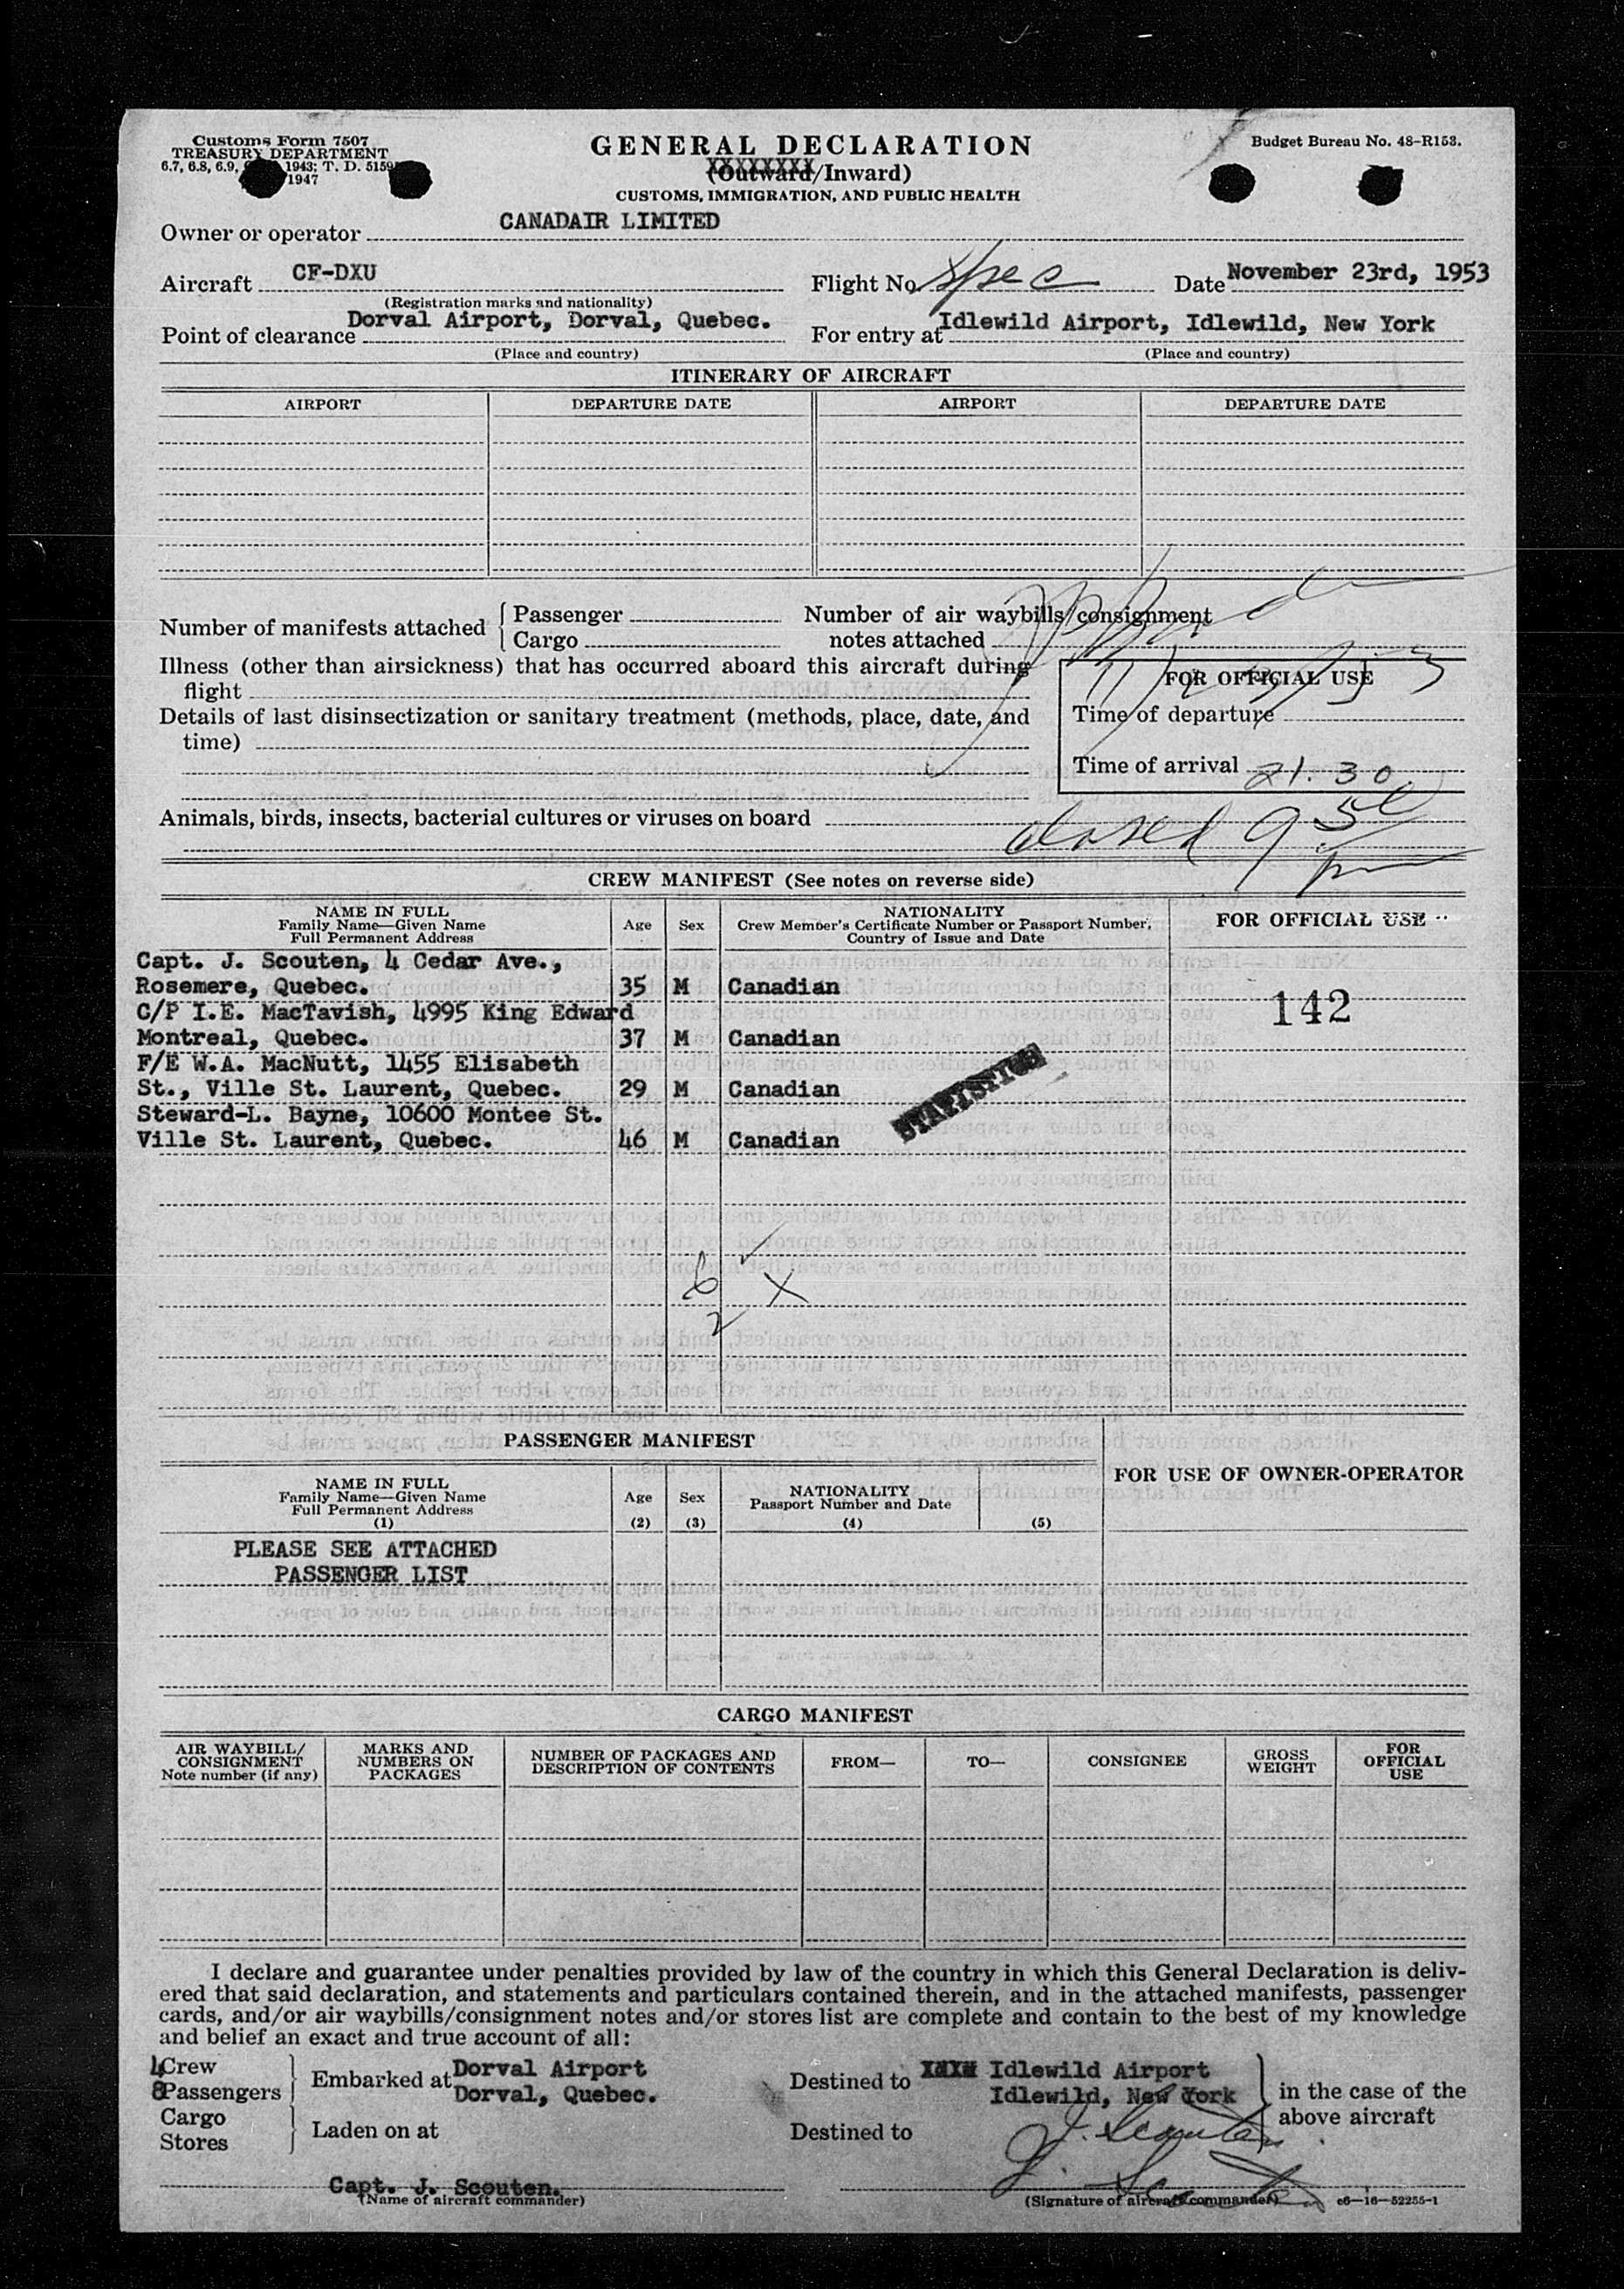 Customs Form 7507
TREASURY DEPARTMENT
6.7, 6.8, 6.9, 1943; T. D. 5159
1947
GENERAL DECLARATION
(Outward/Inward)
CUSTOMS, IMMIGRATION, AND PUBLIC HEALTH
Budget Bureau No. 48-R153.
Owner or operator CANADAIR LIMITED
Aircraft CF-DXU Flight No. spec Date November 23rd, 1953
(Registration marks and nationality)
Point of clearance Dorval Airport, Dorval, Quebec. For entry at Idlewild Airport, Idlewild, New York
(Place and country) (Place and country)
ITINERARY OF AIRCRAFT
AIRPORT DEPARTURE DATE AIRPORT DEPARTURE DATE
Number of manifests attached { Passenger
Cargo
Number of air waybills/consignment
notes attached
Illness (other than airsickness) that has occurred aboard this aircraft during
flight
Details of last disinsectization or sanitary treatment (methods, place, date, and
time)
FOR OFFICIAL USE
11/23/53
Time of departure
Time of arrival 21.30
Animals, birds, insects, bacterial cultures or viruses on board
closed 9.50
pm
CREW MANIFEST (See notes on reverse side)
NAME IN FULL
Family Name—Given Name
Full Permanent Address
Age
Sex
NATIONALITY
Crew Member's Certificate Number or Passport Number,
Country of Issue and Date
FOR OFFICIAL USE
Capt. J. Scouten, 4 Cedar Ave.,
Rosemere, Quebec. 35 M Canadian
142
C/P I.E. MacTavish, 4995 King Edward
Montreal, Quebec. 37 M Canadian
F/E W.A. MacNutt, 1455 Elisabeth
St., Ville St. Laurent, Quebec. 29 M Canadian
STATISTICS
Steward-L. Bayne, 10600 Montee St.
Ville St. Laurent, Quebec. 46 M Canadian
6
2 X
PASSENGER MANIFEST
NAME IN FULL
Family Name—Given Name
Full Permanent Address
(1)
Age
(2)
Sex
(3)
NATIONALITY
Passport Number and Date
(4) (5)
FOR USE OF OWNER-OPERATOR
PLEASE SEE ATTACHED
PASSENGER LIST
CARGO MANIFEST
AIR WAYBILL/
CONSIGNMENT
Note number (if any)
MARKS AND
NUMBERS ON
PACKAGES
NUMBER OF PACKAGES AND
DESCRIPTION OF CONTENTS
FROM—
TO—
CONSIGNEE
GROSS
WEIGHT
FOR
OFFICIAL
USE
I declare and guarantee under penalties provided by law of the country in which this General Declaration is deliv-
ered that said declaration, and statements and particulars contained therein, and in the attached manifests, passenger
cards, and/or air waybills/consignment notes and/or stores list are complete and contain to the best of my knowledge
and belief an exact and true account of all:
4 Crew
8 Passengers
Embarked at Dorval Airport
Dorval, Quebec.
Destined to Idlewild Airport
Idlewild, New York
in the case of the
above aircraft
Cargo
Stores
Laden on at
Destined to
J. Scouten
Capt. J. Scouten.
(Name of aircraft commander)
J. Scouten
(Signature of aircraft commander) c6—16—52255-1